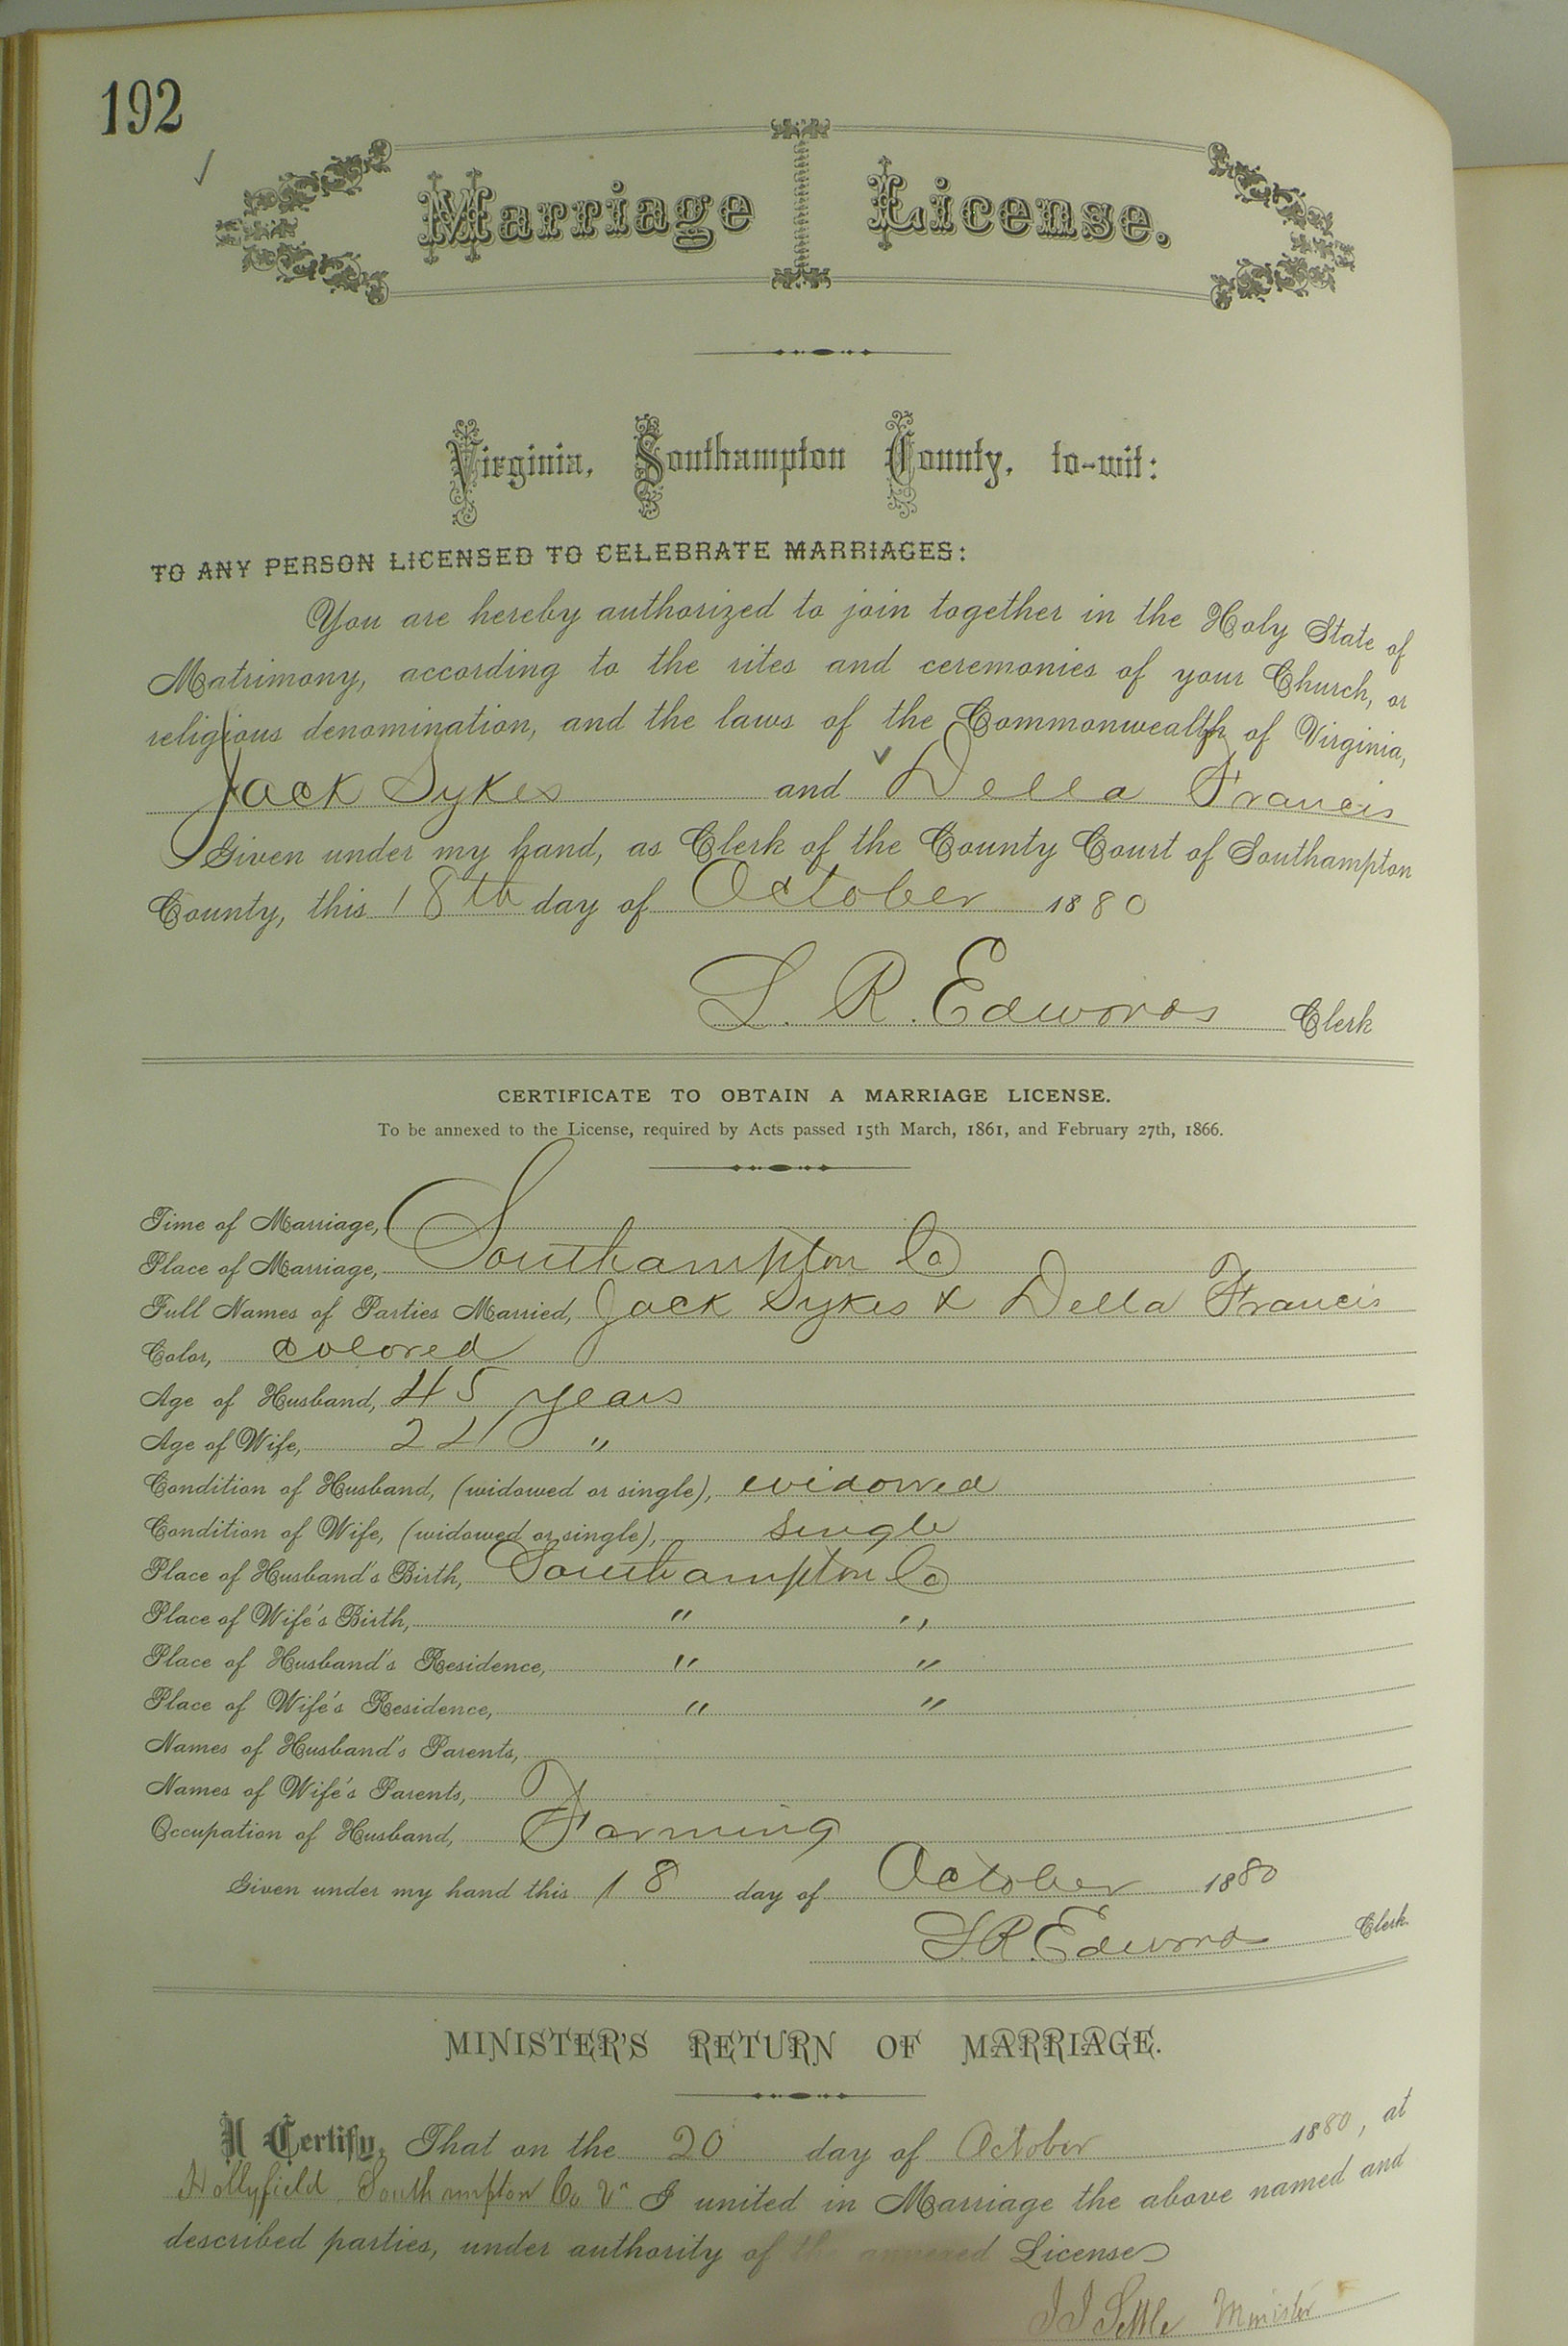 192
Marriage License.
Virginia, Southampton County, to-wit:
TO ANY PERSON LICENSED TO CELEBRATE MARRIAGES:
You are hereby authorized to join together in the Holy State of
Matrimony, according to the rites and ceremonies of your Church, or
religious denomination, and the laws of the Commonwealth of Virginia,
Jack Sykes and Della Francis
Given under my hand, as Clerk of the County Court of Southampton
County, this 18th day of October 1880
L. R. Edwards Clerk
CERTIFICATE TO OBTAIN A MARRIAGE LICENSE.
To be annexed to the License, required by Acts passed 15th March, 1861, and February 27th, 1866.
Time of Marriage,
Place of Marriage, Southampton Co
Full Names of Parties Married, Jack Sykes & Della Francis
Color, colored
Age of Husband, 45 years
Age of Wife, "
Condition of Husband, (widowed or single), widowed
Condition of Wife, (widowed or single), single
Place of Husband's Birth, Southampton Co
Place of Wife's Birth, " "
Place of Husband's Residence, " "
Place of Wife's Residence, " "
Names of Husband's Parents,
Names of Wife's Parents,
Occupation of Husband, Farming
Given under my hand this 18 day of October 1880
L. R. Edwards Clerk.
MINISTER'S RETURN OF MARRIAGE.
I Certify, That on the 20 day of October 1880, at
Hollyfield Southampton Co Va I united in Marriage the above named and
described parties, under authority of the annexed License
Settle Minister